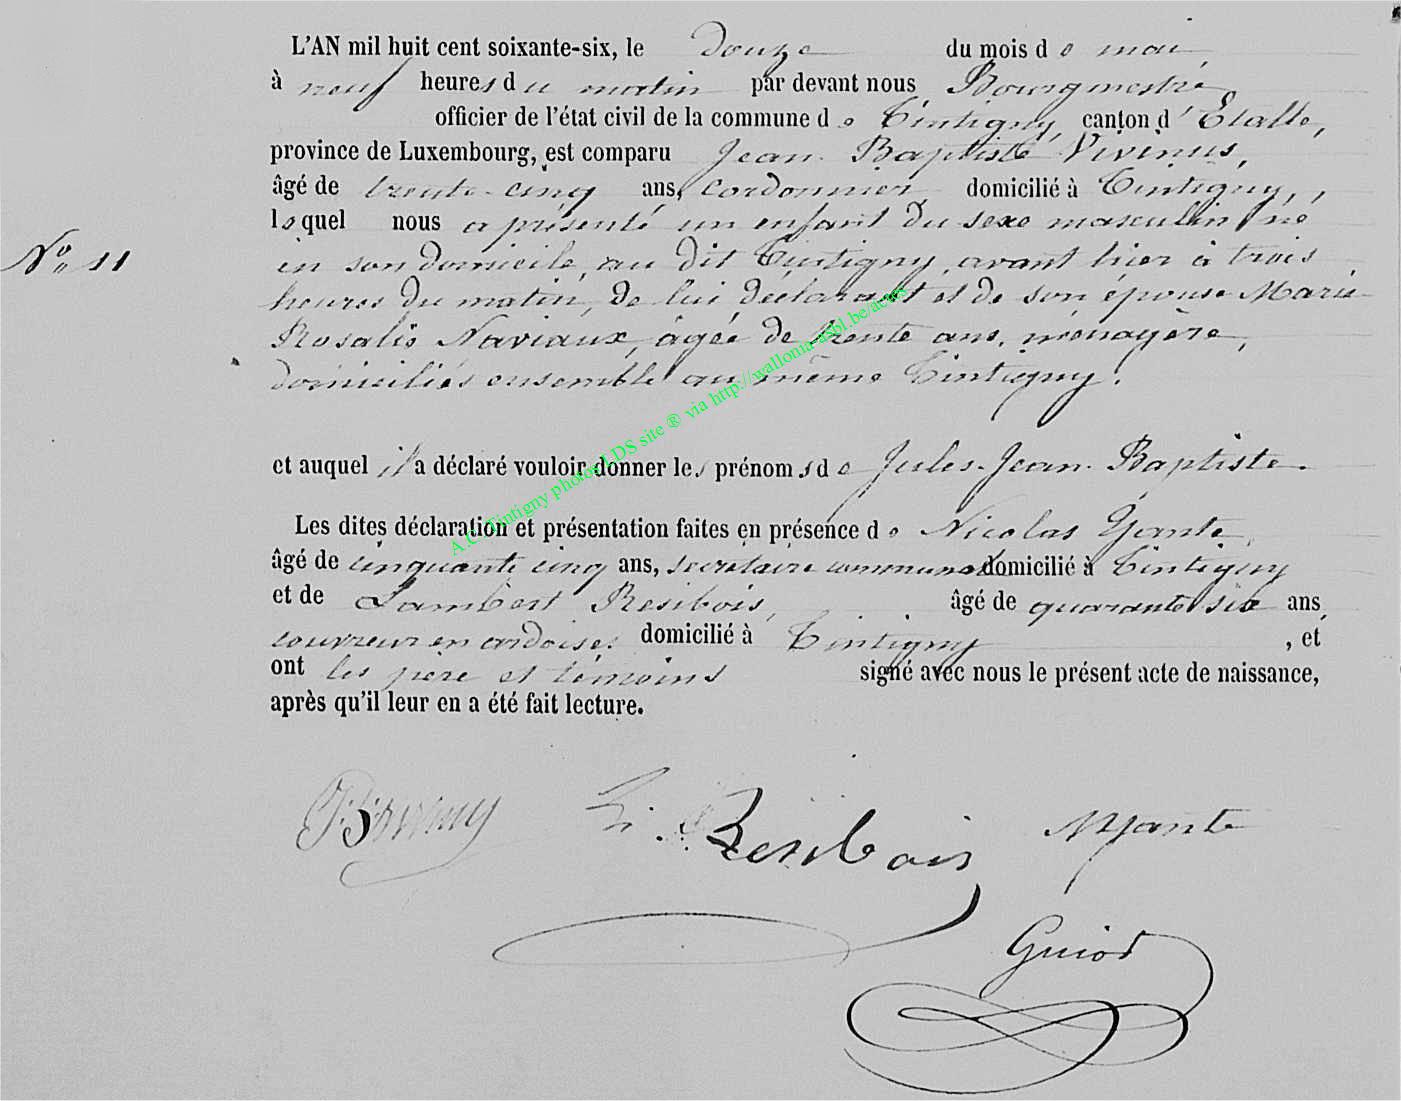 L'AN mil huit cent soixante-six, le douze du mois de mai
à neuf heures du matin par devant nous Bourgmestre
officier de l'état civil de la commune de Tintigny, canton d'Etalle,
province de Luxembourg, est comparu Jean-Baptiste Vivinus,
âgé de trente-cinq ans, cordonnier domicilié à Tintigny,
lequel nous a présenté un enfant du sexe masculin né
N° 11
en son domicile, au dit Tintigny, avant hier à trois
heures du matin, de lui déclarant et de son épouse Marie
Rosalie Naviaux, âgée de trente ans, ménagère,
domiciliés ensemble au même Tintigny.
et auquel il a déclaré vouloir donner les prénoms de Jules-Jean-Baptiste.
A.C. Tintigny photos LDS site ® via http://wallonia-asbl.be/actes
Les dites déclaration et présentation faites en présence de Nicolas Yante,
âgé de cinquante cinq ans, secrétaire communal domicilié à Tintigny
et de Lambert Resibois, âgé de quarante six ans,
couvreur en ardoises domicilié à Tintigny, et
ont les père et témoins signé avec nous le présent acte de naissance,
après qu'il leur en a été fait lecture.
L. Resibois NYante
Guiot